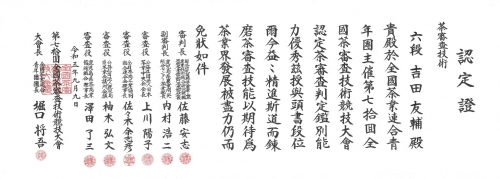 認定證
茶審査技術
六段 吉田友輔殿
貴殿於全國茶業連合青
年團主催第七拾回全
國茶審査技術競技大會
認定茶審査判定鑑別能
力優秀茲敘與頭書段位
爾今益〻精進斯道而錬
磨茶審査技能以期待爲
茶業界發展被盡力仍而
免狀如件
審判長 佐藤安志
副審判長 内村浩二
審査役 上川陽子
審査役 佐々木余志彦
審査役 柚木弘文
審査役 澤田了三
令和三年九月九日
第七拾回全國茶審査技術競技大會
大會長 堀口将吾